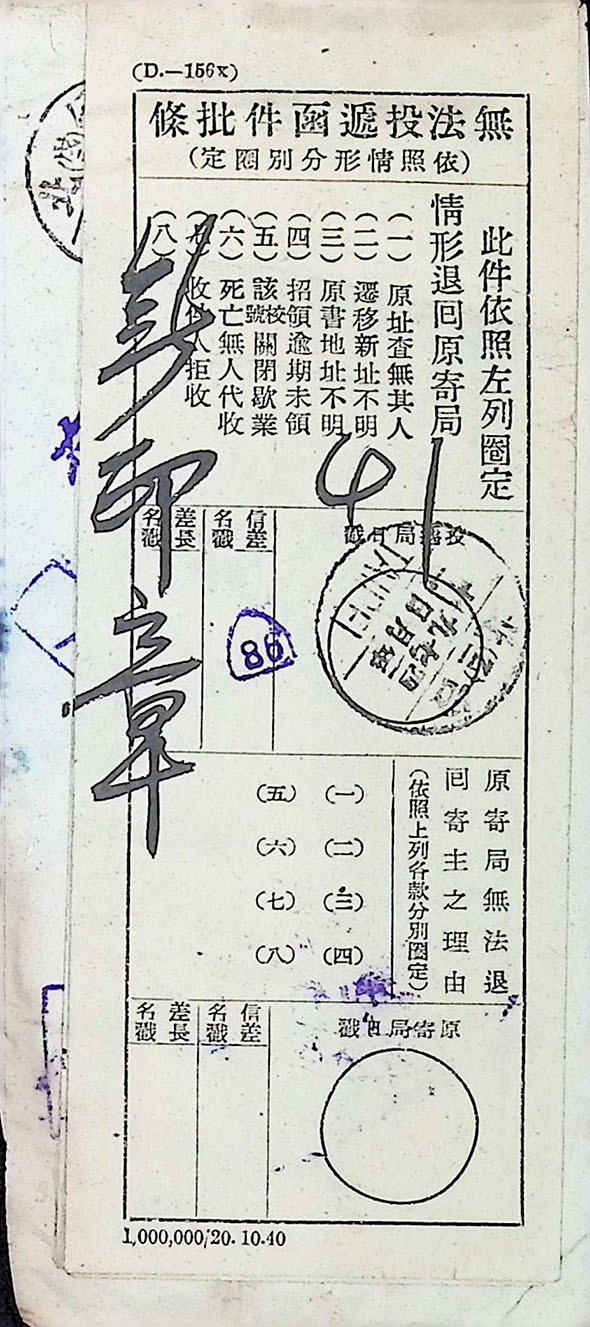 (D.—156x)
無法投遞函件批條
(依照情形分別圈定)
此件依照左列圈定
情形退回原寄局
(一) 原址查無其人
(二) 遷移新址不明
(三) 原書地址不明
(四) 招領逾期未領
(五) 該號校關閉歇業
(六) 死亡無人代收
(七) 收件人拒收
(八)
41
印章
投遞局日戳
信差名戳
差長名戳
86
原寄局無法退
回寄主之理由
(依照上列各款分別圈定)
(一)
(二)
(三)
(四)
(五)
(六)
(七)
(八)
原寄局日戳
信差名戳
差長名戳
1,000,000/20. 10. 40